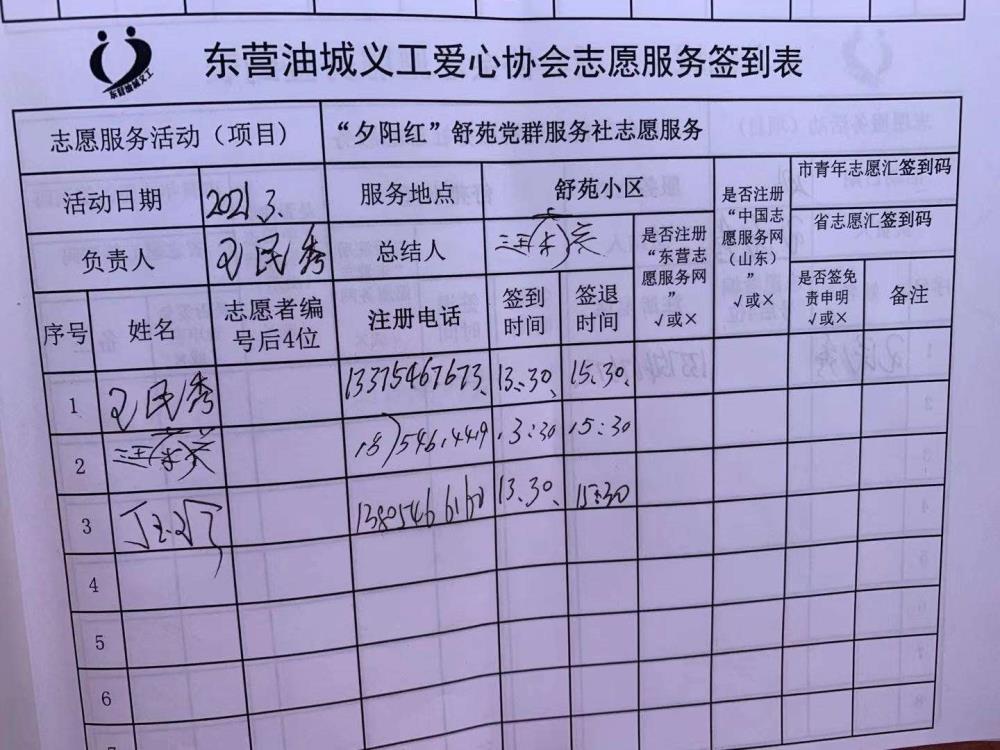 东营油城义工爱心协会志愿服务签到表
东营油城义工
志愿服务活动（项目） “夕阳红”舒苑党群服务社志愿服务
活动日期 2021.3. 服务地点 舒苑小区 是否注册“中国志愿服务网（山东）”√或× 市青年志愿汇签到码
负责人 王民秀 总结人 是否注册“东营志愿服务网”√或× 省志愿汇签到码
序号 姓名 志愿者编号后4位 注册电话 签到时间 签退时间 是否签免责申明√或× 备注
1 王民秀 13375467673 13:30 15:30
2 13:30 15:30
3 13:30 15:30
4
5
6